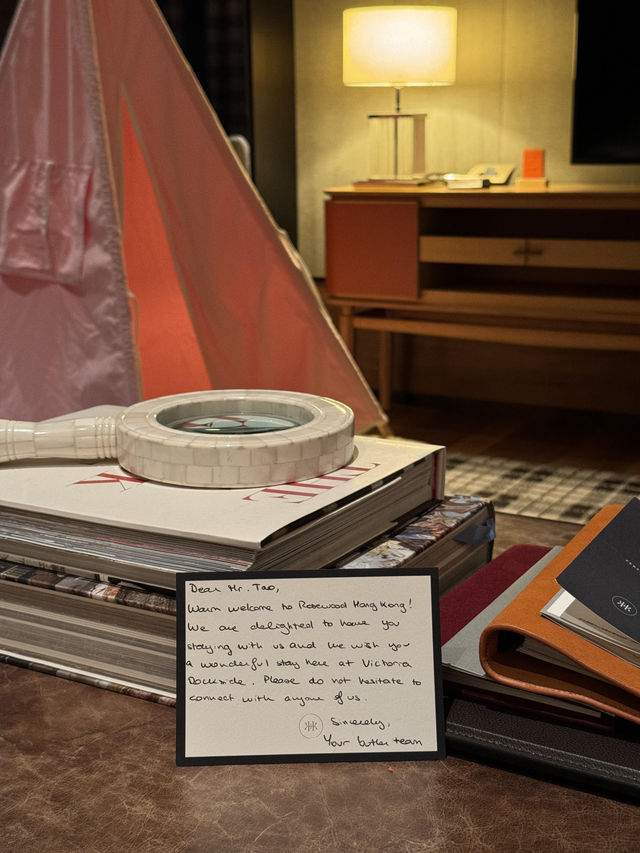 Dear Mr. Tao,
Warm welcome to Rosewood Hong Kong!
We are delighted to have you
staying with us and we wish you
a wonderful stay here at Victoria
Dockside. Please do not hesitate to
connect with anyone of us.
Sincerely,
Your butler team